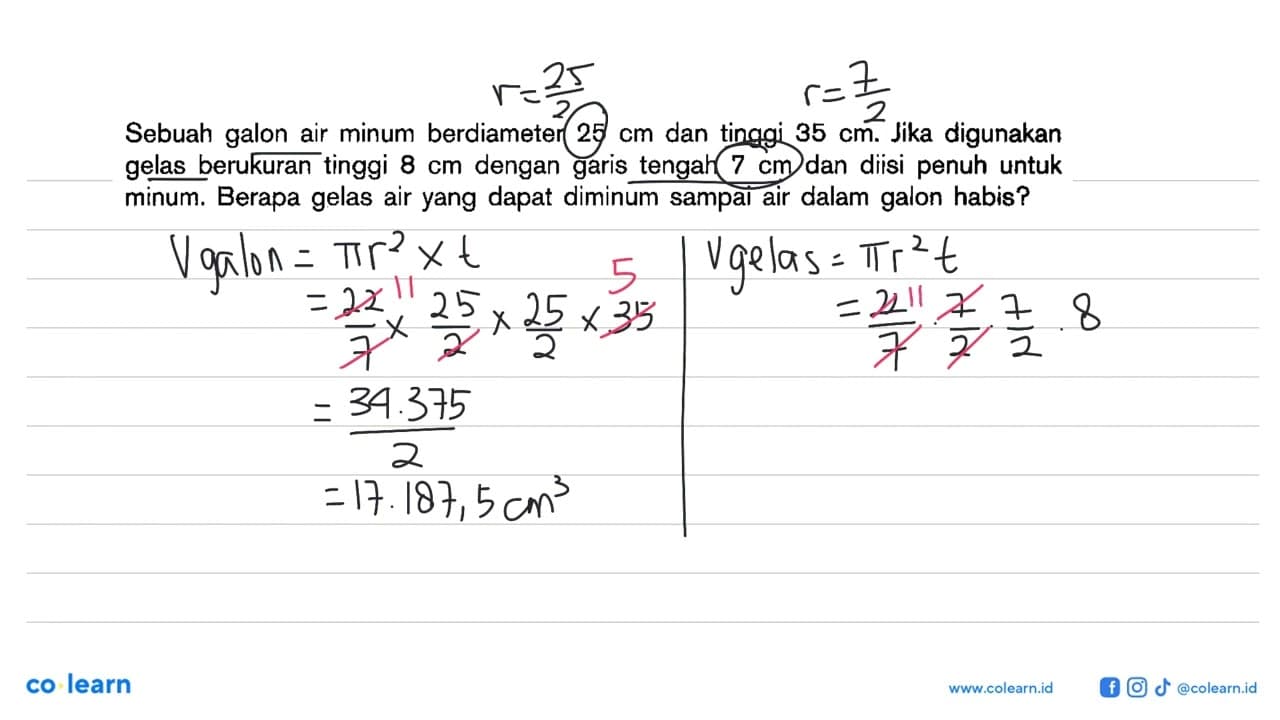 r = 25/2
r = 7/2
Sebuah galon air minum berdiameter 25 cm dan tinggi 35 cm. Jika digunakan
gelas berukuran tinggi 8 cm dengan garis tengah 7 cm dan diisi penuh untuk
minum. Berapa gelas air yang dapat diminum sampai air dalam galon habis?
V galon = πr² × t
= 22/7 × 25/2 × 25/2 × 35
11
5
= 34.375/2
= 17.187,5 cm³
V gelas = πr² t
= 22/7 . 7/2 . 7/2 . 8
11
co learn
www.colearn.id
@colearn.id